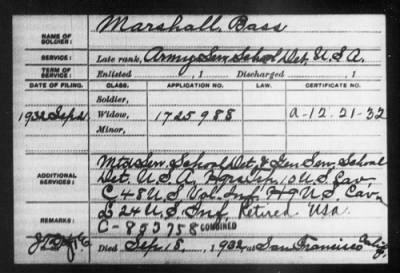 NAME OF SOLDIER: Marshall, Bass
SERVICE: Late rank, Army Serv. School Det. U.S.A.
TERM OF SERVICE: Enlisted , 1 Discharged , 1
DATE OF FILING. CLASS. APPLICATION NO. LAW. CERTIFICATE NO.
Soldier,
1932 Sep 21 Widow, 1725988 a-12.21-32
Minor,
ADDITIONAL SERVICES: Mtd Serv. School Det. & Gen Serv. School
Det. U.S.A. 10 U.S. Cav
C-48 U.S. Vol. Inf. 9 U.S. Cav.
24 U.S. Inf. Retired USA
REMARKS: C-853758 COMBINED
Died Sep 18, 1932 at San Francisco Calif